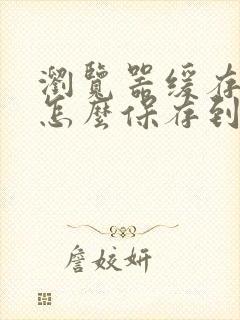 瀏覽器緩存
怎麼保存到
詹姣妍